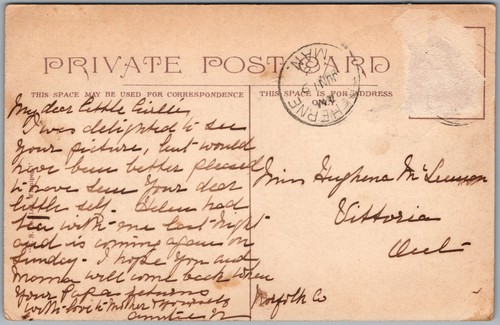 PRIVATE POST CARD
THIS SPACE MAY BE USED FOR CORRESPONDENCE
THIS SPACE IS FOR ADDRESS
HERNE
JUN
MAN
My dear Little
I was delighted to see
Your picture, but would
have been better pleased
to have seen Your dear
little self. Helen had
tea with me last night
and is coming again on
Sunday. I hope You and
Mama will come back when
Your Papa returns
with love Mother
Auntie
Miss Hughena McLennon
Vittoria
Ont
Norfolk Co